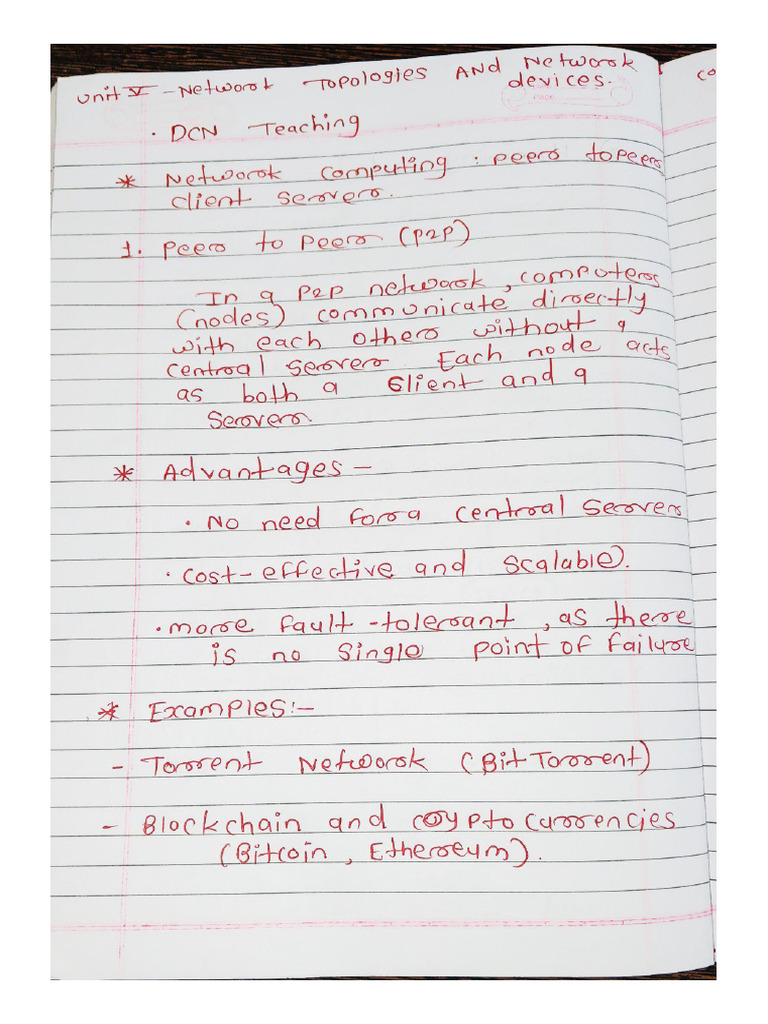 Unit V - Network Topologies AND Network
devices.
• DCN Teaching
* Network computing : peer to peer,
client server.
1. peer to peer (P2P)
In a P2P network, computers
(nodes) communicate directly
with each other without a
central server Each node acts
as both a client and a
server.
* Advantages -
• No need for a central server
• cost-effective and scalable).
• more fault-tolerant, as there
is no single point of failure
* Examples:-
- Torrent Network (BitTorrent)
- Blockchain and cryptocurrencies
(Bitcoin, Ethereum).
co